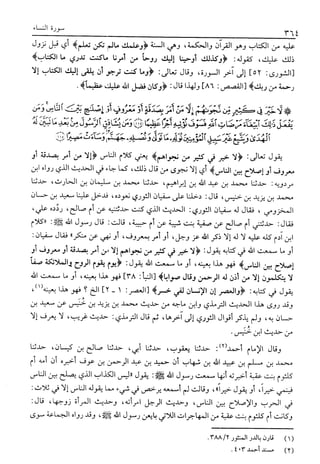 ٣٦٤ سورة النساء
عليه من الكتاب وهو القرآن والحكمة، وهي السنة ﴿وعلمك مالم تكن تعلم﴾ أي قبل نزول
ذلك عليك، كقوله: ﴿وكذلك أوحينا إليك روحاً من أمرنا ماكنت تدري ما الكتاب﴾
[الشورى: ٥٢] إلى آخر السورة، وقال تعالى: ﴿وما كنت ترجو أن يلقى إليك الكتاب إلا
رحمة من ربك﴾ [القصص: ٨٦] ولهذا قال: ﴿وكان فضل الله عليك عظيماً﴾.
﴿لَا خَيْرَ فِي كَثِيرٍ مِنْ نَجْوَاهُمْ إِلَّا مَنْ أَمَرَ بِصَدَقَةٍ أَوْ مَعْرُوفٍ أَوْ إِصْلَاحٍ بَيْنَ النَّاسِ وَمَنْ
يَفْعَلْ ذَلِكَ ابْتِغَاءَ مَرْضَاتِ اللَّهِ فَسَوْفَ نُؤْتِيهِ أَجْرًا عَظِيمًا وَمَنْ يُشَاقِقِ الرَّسُولَ مِنْ بَعْدِ مَا تَبَيَّنَ لَهُ
الْهُدَى وَيَتَّبِعْ غَيْرَ سَبِيلِ الْمُؤْمِنِينَ نُوَلِّهِ مَا تَوَلَّى وَنُصْلِهِ جَهَنَّمَ وَسَاءَتْ مَصِيرًا﴾
يقول تعالى: ﴿لا خير في كثير من نجواهم﴾ يعني كلام الناس ﴿إلا من أمر بصدقة أو
معروف أو إصلاح بين الناس﴾ أي إلا نجوى من قال ذلك، كما جاء في الحديث الذي رواه ابن
مردويه: حدثنا محمد بن عبد الله بن إبراهيم، حدثنا محمد بن سليمان بن الحارث، حدثنا
محمد بن يزيد بن خنيس، قال: دخلنا على سفيان الثوري نعوده، فدخل علينا سعيد بن حسان
المخزومي، فقال له سفيان الثوري: الحديث الذي كنت حدثتنيه عن أم صالح، ردده علي،
فقال: حدثتني أم صالح عن صفية بنت شيبة عن أم حبيبة، قالت: قال رسول الله ﷺ: «كلام
ابن آدم كله عليه لا له إلا ذكر الله عز وجل، أو أمر بمعروف، أو نهي عن منكر» فقال سفيان:
أو ما سمعت الله في كتابه يقول: ﴿لا خير في كثير من نجواهم إلا من أمر بصدقة أو معروف أو
إصلاح بين الناس﴾ فهو هذا بعينه، أو ما سمعت الله يقول: ﴿يوم يقوم الروح والملائكة صفاً
لا يتكلمون إلا من أذن له الرحمن وقال صواباً﴾ [النبأ: ٣٨] فهو هذا بعينه، أو ما سمعت الله
يقول في كتابه: ﴿والعصر إن الإنسان لفي خسر﴾ [العصر: ١ - ٢] الخ ؟ فهو هذا بعينه(١).
وقد روى هذا الحديث الترمذي وابن ماجه من حديث محمد بن يزيد بن خنيس عن سعيد بن
حسان به، ولم يذكر أقوال الثوري إلى آخرها، ثم قال الترمذي: حديث غريب، لا يعرف إلا
من حديث ابن خنيس.
وقال الإمام أحمد(٢): حدثنا يعقوب، حدثنا أبي، حدثنا صالح بن كيسان، حدثنا
محمد بن مسلم بن عبيد الله بن شهاب أن حميد بن عبد الرحمن بن عوف أخبره أن أمه أم
كلثوم بنت عقبة أخبرته أنها سمعت رسول الله ﷺ: يقول «ليس الكذاب الذي يصلح بين الناس
فينمي خيراً، أو يقول خيراً»، وقالت لم أسمعه يرخص في شيء مما يقوله الناس إلا في ثلاث:
في الحرب والإصلاح بين الناس، وحديث الرجل امرأته، وحديث المرأة زوجها، قال:
وكانت أم كلثوم بنت عقبة من المهاجرات اللاتي بايعن رسول الله ﷺ، وقد رواه الجماعة سوى
(١) قارن بالدر المنثور ٢/ ٣٨٨.
(٢) مسند أحمد ٤٠٣.